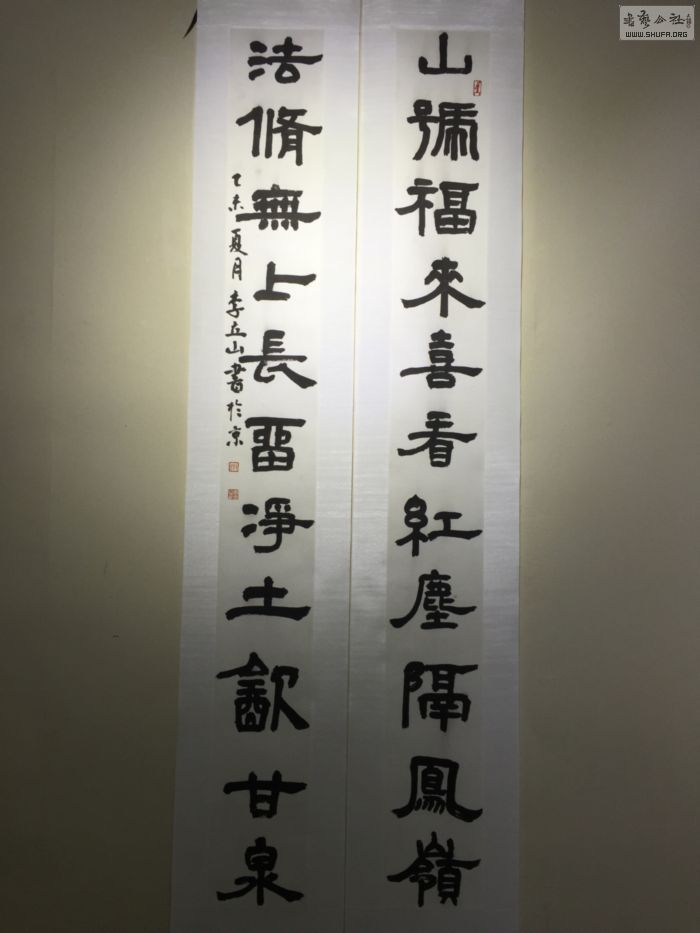 山號福來喜看紅塵隔鳳嶺
法脩無上長畱淨土歙甘泉
乙未夏月李立山書於京
書藝公社
WWW.SHUFA.ORG